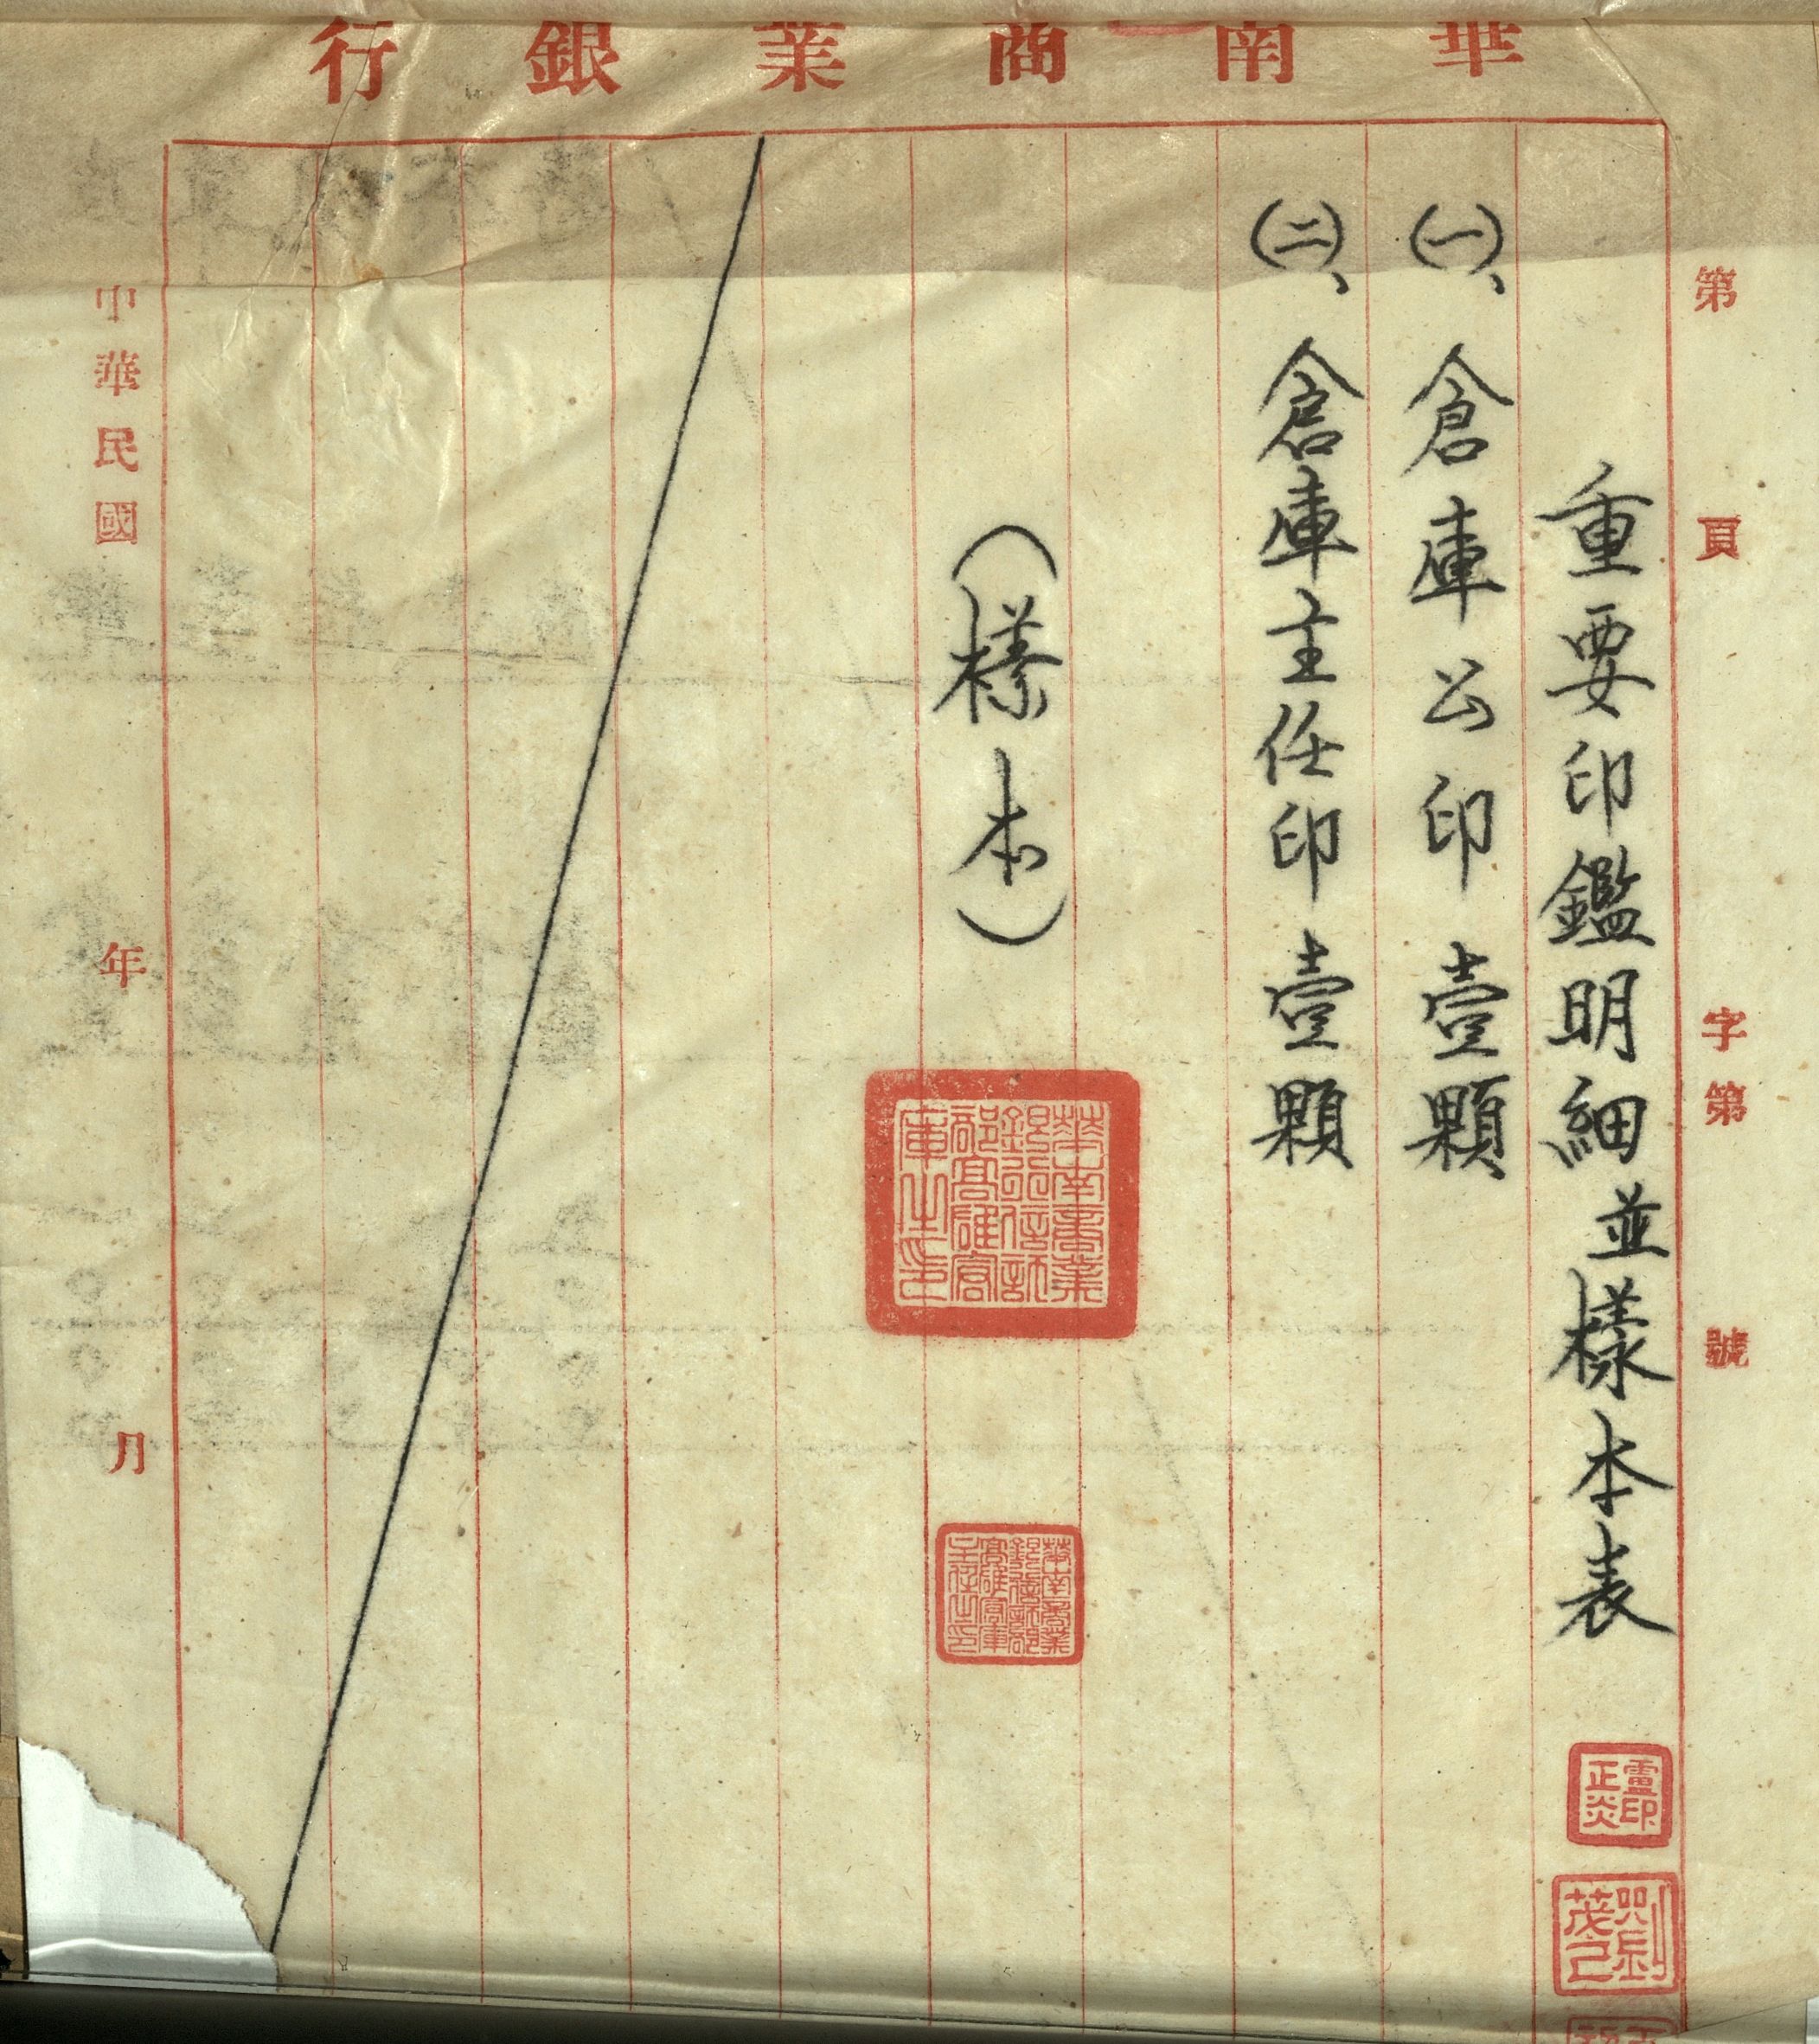 華南商業銀行
第 頁 字第 號
重要印鑑明細並樣本表
盧印正炎
劉茂己
㈠、倉庫公印 壹顆
㈡、倉庫主任印 壹顆
（樣本）
華南商業銀行信託部高雄倉庫之印
華南商業銀行信託部高雄倉庫主任之印
中華民國 年 月